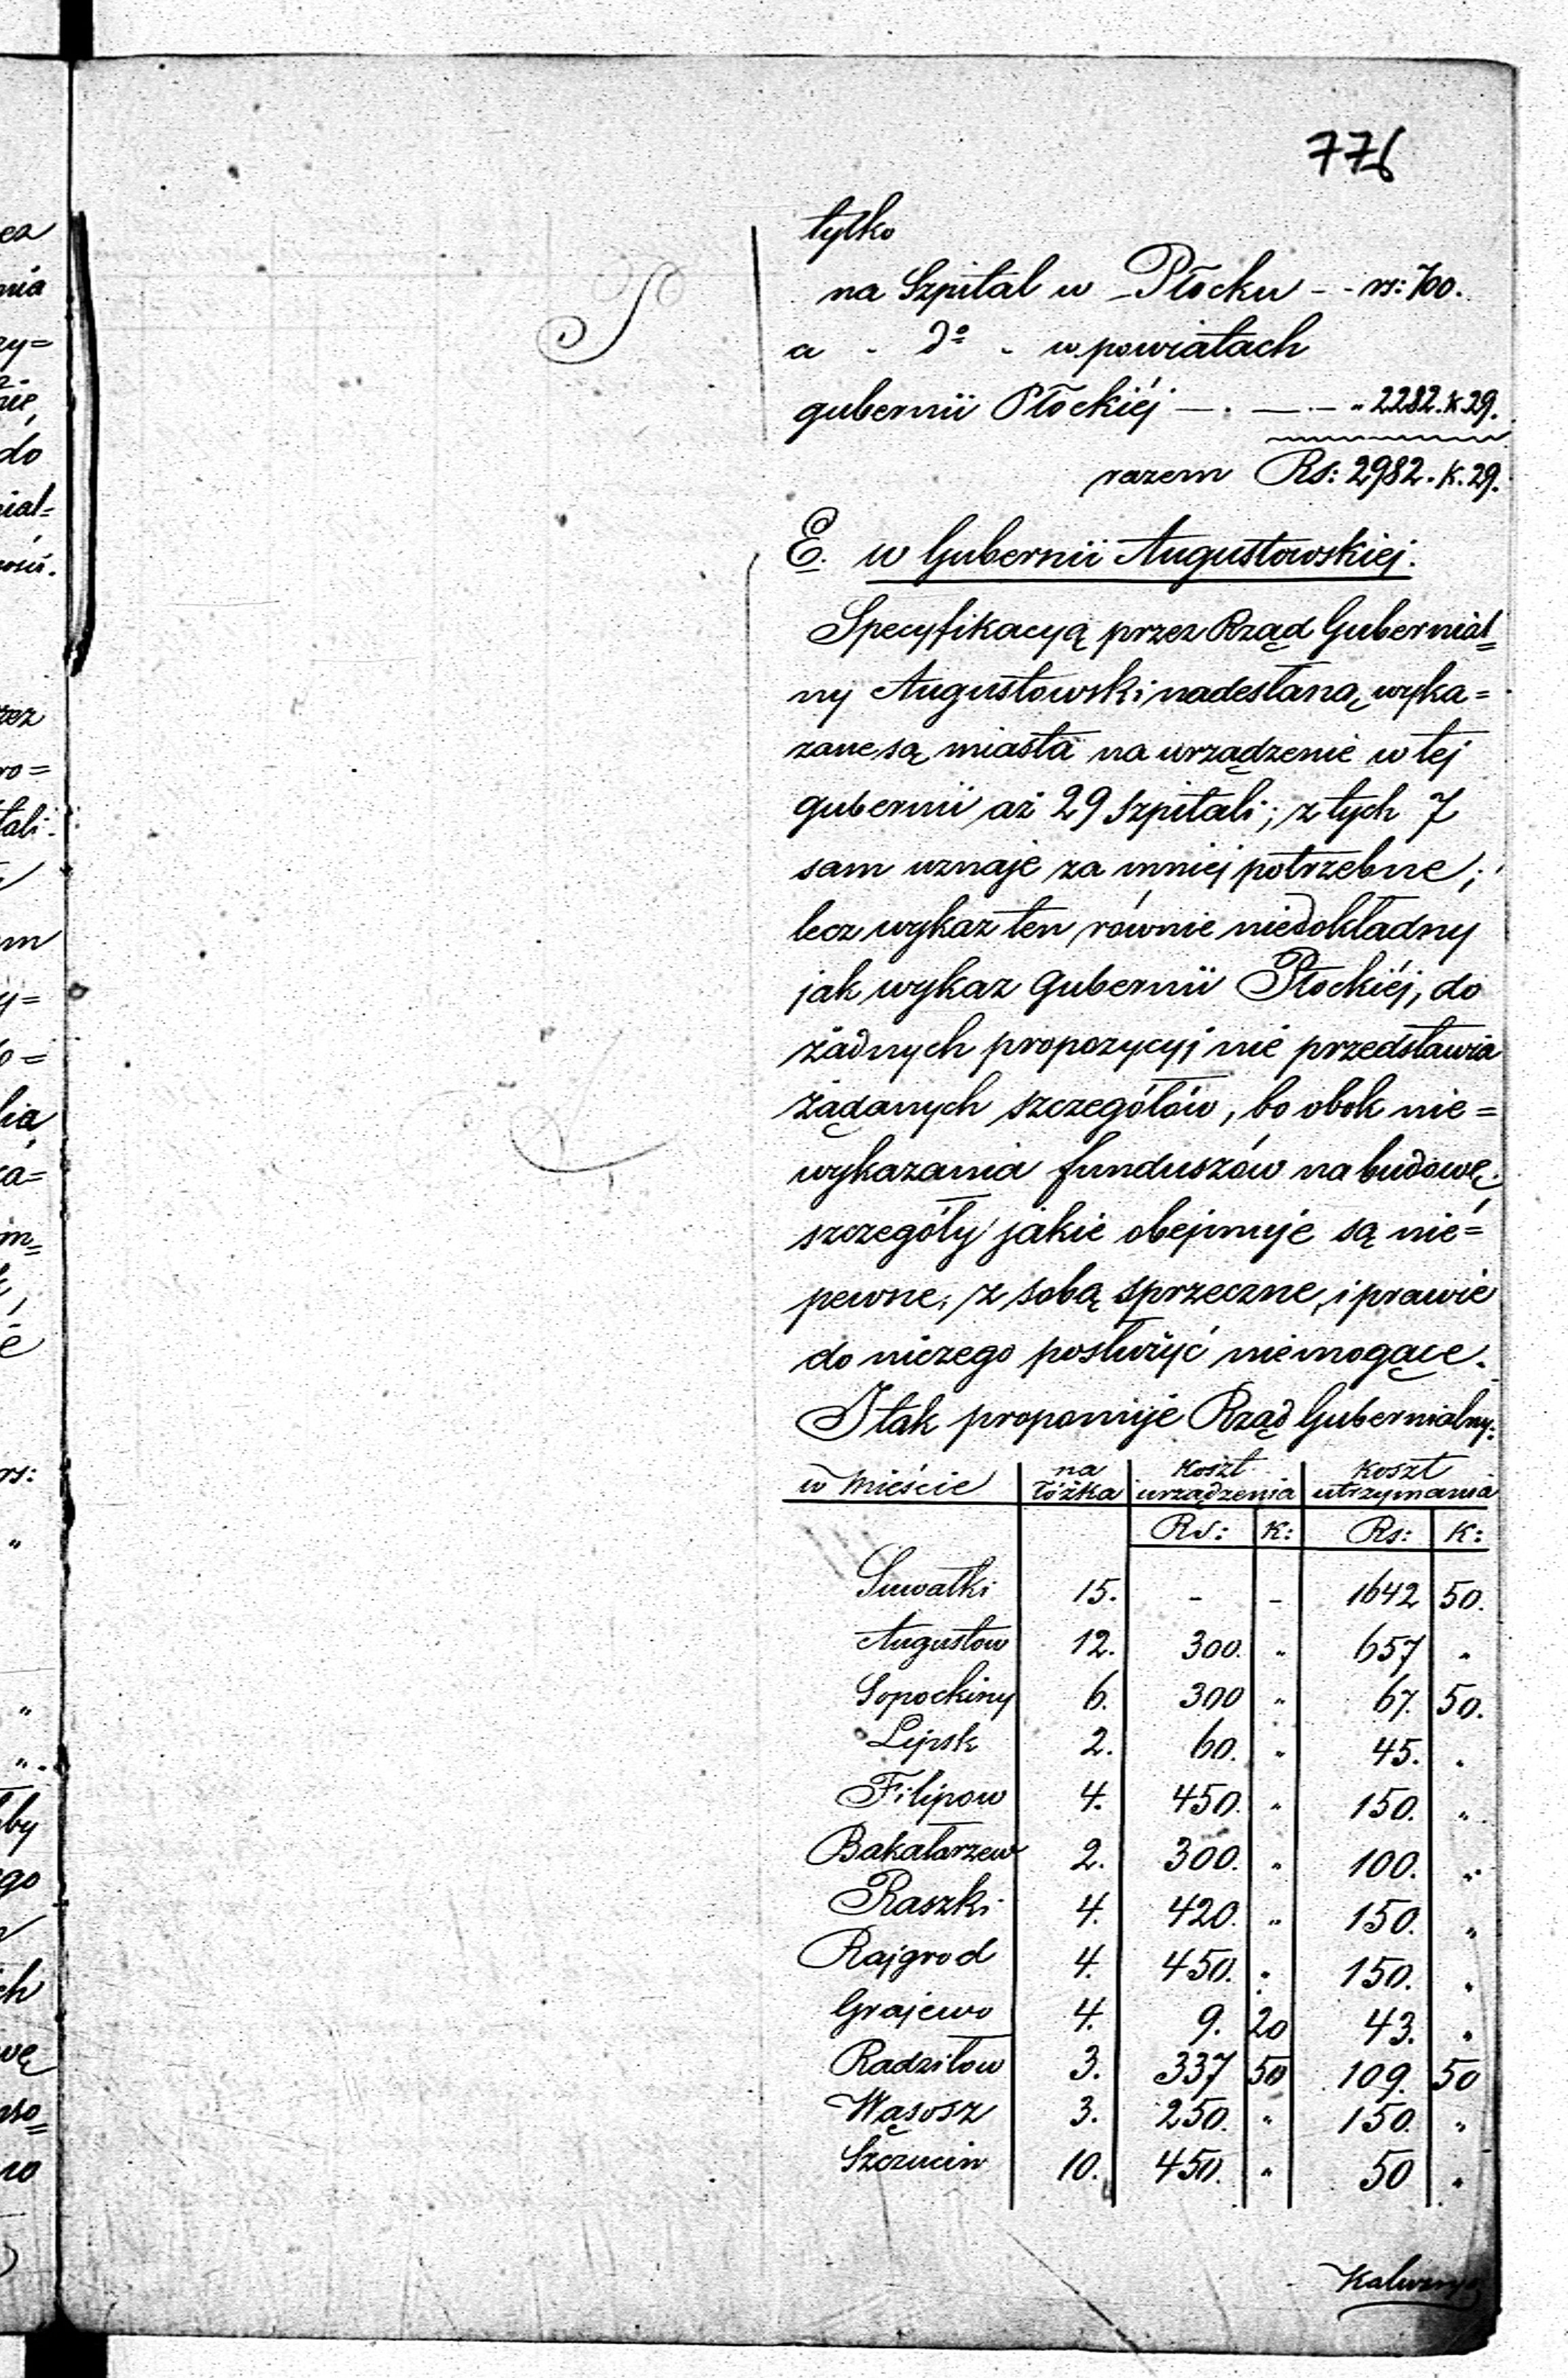 776
tylko
na Szpital w Płocku - - rs: 700.
a - do - w powiatach
gubernii Płockiéj — . — . — „ 2282. k. 29.
razem Rs: 2982. k. 29.
E. w Gubernii Augustowskiej.
Specyfikacyą przez Rząd Gubernial=
ny Augustowski nadesłaną, wyka=
zane są miasta na urządzenie w tej
gubernii aż 29 szpitali; z tych 7
sam uznaje za mniej potrzebne;
lecz wykaz ten równie niedokładny
jak wykaz Gubernii Płockiéj, do
żadnych propozycyj nie przedstawia
żądanych szczegółów, bo obok nie=
wykazania funduszów na budowę,
szczegóły jakie obejmuje są nie=
pewne, z sobą sprzeczne, i prawie
do niczego posłużyć niemogące.
I tak proponuje Rząd Gubernialny:
w Mieście | na łóżka | Koszt urządzenia | Koszt utrzymania
Rs: | K: | Rs: | K:
Suwałki 15. - - 1642 50.
Augustow 12. 300. „ 657 „
Sopockiny 6. 300 „ 67. 50.
Lipsk 2. 60. „ 45. „
Filipow 4. 450. „ 150. „
Bakałarzew 2. 300. „ 100. „
Raszki 4. 420. „ 150. „
Rajgrod 4. 450. „ 150. „
Grajewo 4. 9. 20 43. „
Radziłow 3. 337 50 109. 50
Wąsosz 3. 250. „ 150. „
Szczucin 10. 450. „ 50 „